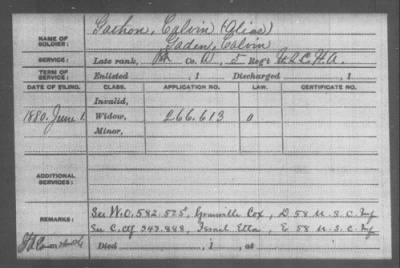 NAME OF SOLDIER: Gashon, Calvin (Alias)
Gaden, Calvin
SERVICE: Late rank, Co. A, 5 Reg't U.S.C.H.A.
TERM OF SERVICE: Enlisted , 1 Discharged , 1
DATE OF FILING. CLASS. APPLICATION NO. LAW. CERTIFICATE NO.
Invalid,
1880. June 1. Widow, 266.613
Minor,
ADDITIONAL SERVICES:
REMARKS: See W.O. 582.525, Granville Cox, D 58 U.S.C. Inf
See C. Ctf 343.848, Etta, E 58 U.S.C. Inf
Died , 1 , at